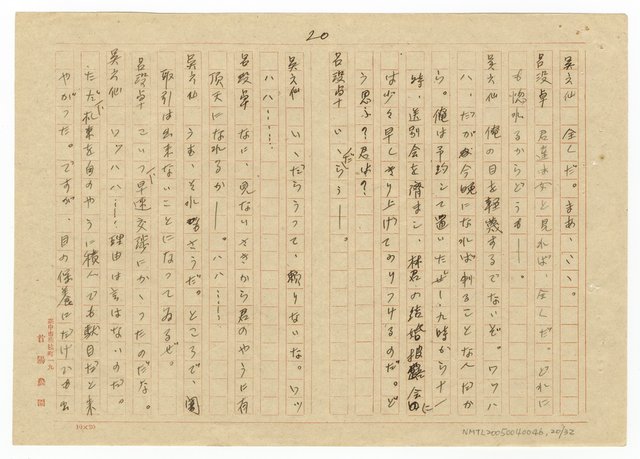 20
吳六仙 全くだ。まあ、い、い。
呂段卓 君達は女と見れば、全くだ。どれに
も惚れるからどうも——。
吳六仙 俺の目を軽蔑するでないぞ。ワハハ
ハ、だが今晩になれば判ることなんだか
ら。俺は予約して置いたぜ——九時から十
時、送別会を済まし、林君の結婚披露会に
は少々早しきり上げてのりつけるのだ。ど
う思ふ？君は？
呂段卓 い、だらう——。
吳六仙 い、だらうって、頼りないな。ハッ
ハハ……
呂段卓 なに、見ないさきから君のやうに有
頂天になれるか——。ハハ……
吳六仙 うむ、それもさうだ。ところで、闇
取引は出来ないことになってゐるぜ。
呂段卓 こいつ、早速交渉にかゝったのだな。
吳六仙 ワハハハ……理由は差はないのだ。
たゞ札束を目のやうに積んでも駄目だと来
やがった。ですが、目の保養にだけでも出
10×20
NMTL20050040046, 20/32